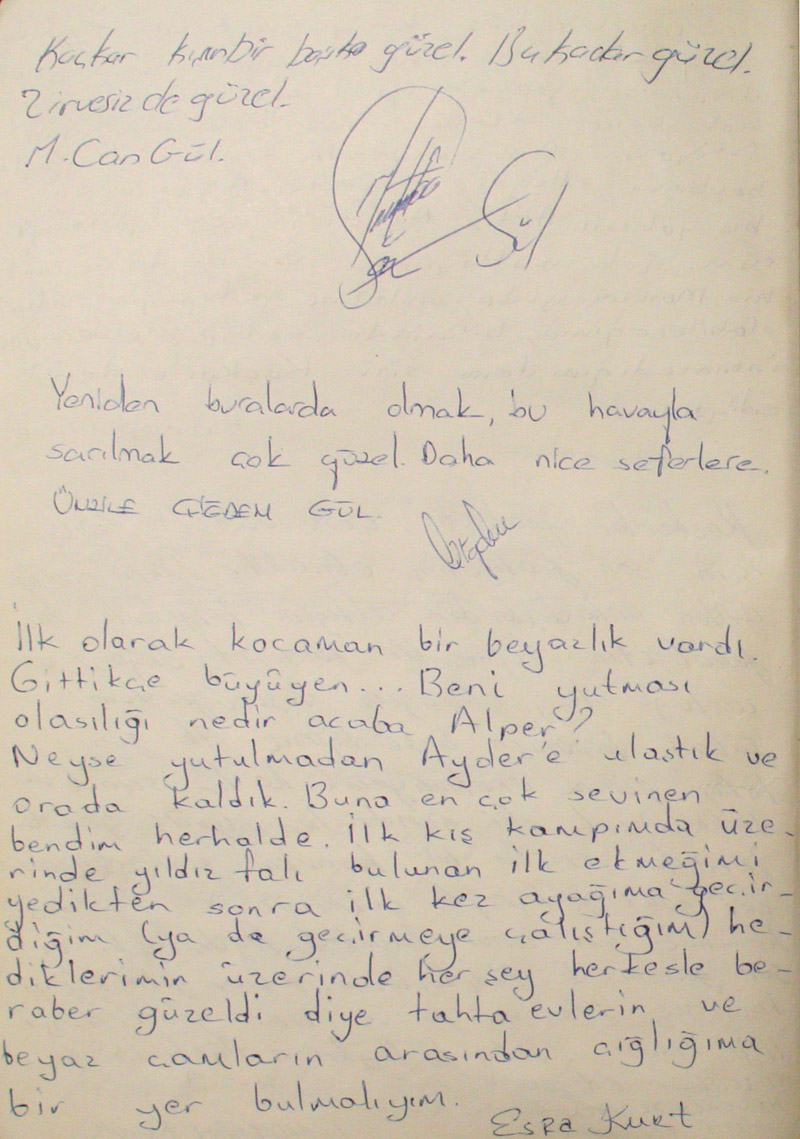 Kaçkar kışın bir başka güzel. Bu kadar güzel.
Zirvesiz de güzel.
M. Can Gül.
Yeniden buralarda olmak, bu havayla
sarılmak çok güzel. Daha nice seferlere.
ÜMZİLE ÇİĞDEM GÜL
İlk olarak kocaman bir beyazlık vardı.
Gittikçe büyüyen... Beni yutması
olasılığı nedir acaba Alper?
Neyse yutulmadan Ayder'e ulastık ve
orada kaldık. Buna en çok sevinen
bendim herhalde. İlk kış kampımda üze-
rinde yıldız falı bulunan ilk ekmeğimi
yedikten sonra ilk kez ayağıma geçir-
diğim (ya da geçirmeye çalıştığım) he-
diklerimin üzerinde her şey herkesle be-
raber güzeldi diye tahta evlerin ve
beyaz çamların arasından çığlığıma
bir yer bulmalıyım.
Esra Kurt